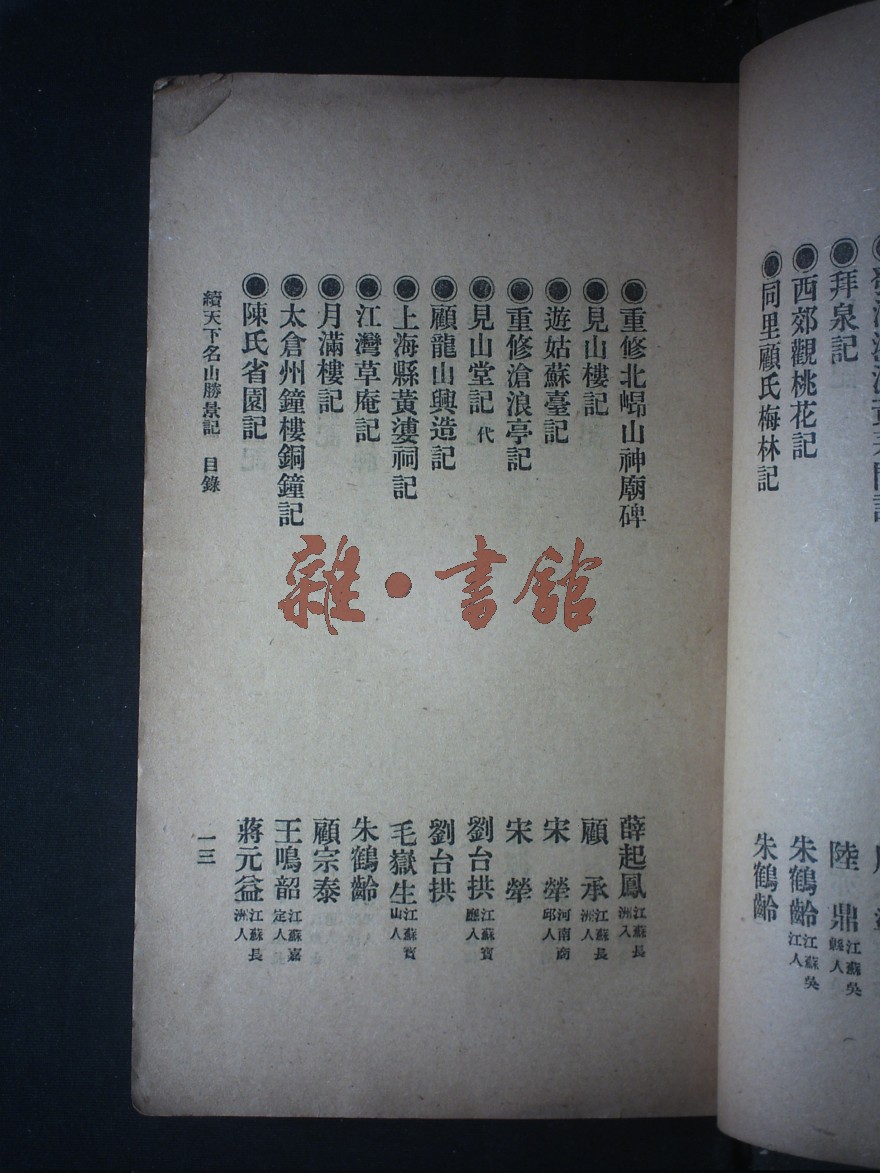 拜泉記 陸鼎 江蘇吳縣人
西郊觀桃花記 朱鶴齡 江蘇吳江人
同里顧氏梅林記 朱鶴齡
重修北崵山神廟碑 薛起鳳 江蘇長洲人
見山樓記 顧承 江蘇長洲人
遊姑蘇臺記 宋犖 河南商邱人
重修滄浪亭記 宋犖
見山堂記 代 劉台拱 江蘇寶應人
顧龍山興造記 劉台拱
上海縣黃婆祠記 毛嶽生 江蘇寶山人
江灣草庵記 朱鶴齡
月滿樓記 顧宗泰
太倉州鐘樓銅鐘記 王鳴韶 江蘇嘉定人
陳氏省園記 蔣元益 江蘇長洲人
續天下名山勝景記 目錄 一三
雜·書館